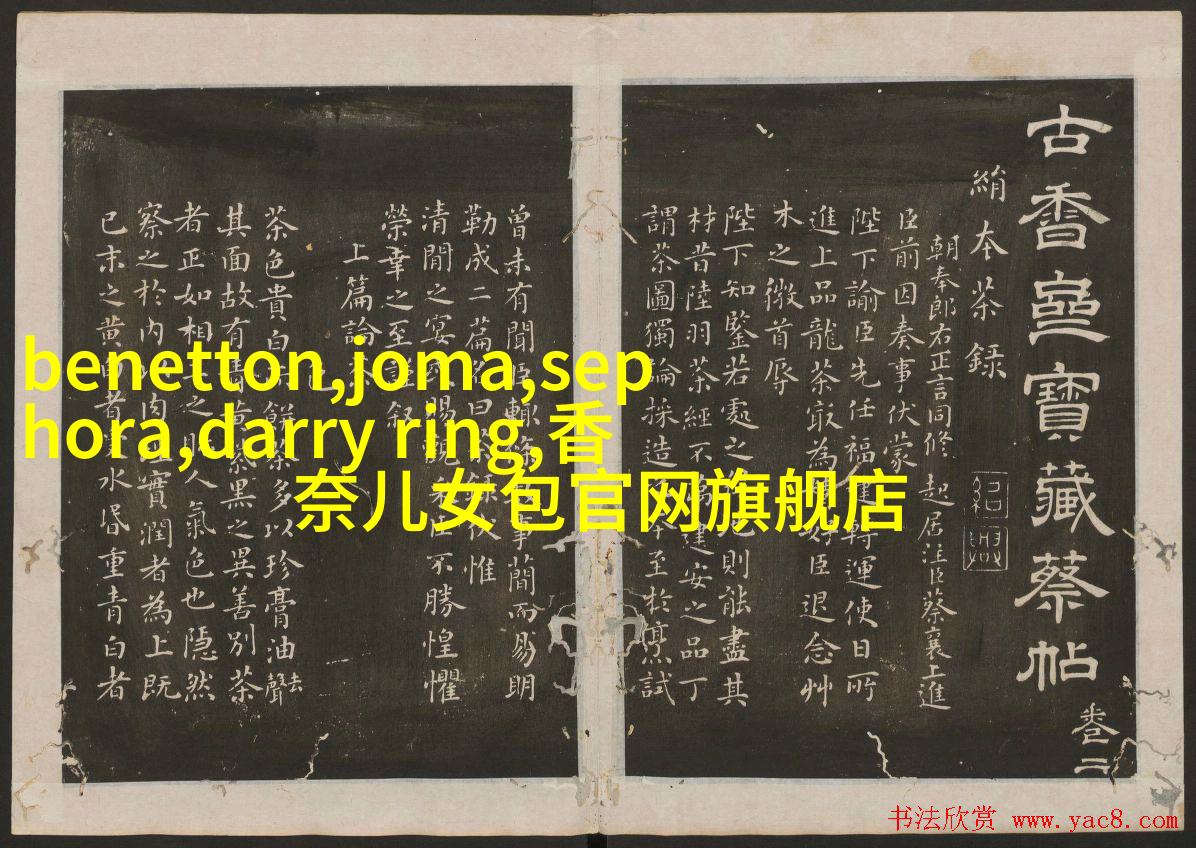 古香齋寶藏蔡帖
卷二
絹本茶錄
紹興
朝奉郎右正言同修起居注臣蔡襄上進
臣前因奏事伏蒙
陛下諭臣先任福建轉運使日所
進上品龍茶㝡為精好臣退念艸
木之微首辱
陛下知鑒若處之得地則能盡其
材昔陸羽茶經不第建安之品丁
謂茶圖獨論採造之本至於烹試
曾未有聞臣輒條數事簡而易明
勒成二篇名曰茶錄伏惟
清閒之宴或賜觀采臣不勝惶懼
榮幸之至謹叙
上篇論茶
色
茶色貴白而餅茶多以珍膏油去聲
其面故有青黃紫黑之異善別茶
者正如相工之人氣色也隱然
察之於內以肉理實潤者為上既
已末之黃白者受水昏重青白者
benetton,joma,sep
hora,darry ring,香
奈儿女包官网旗舰店
书法欣赏 www.yac8.com